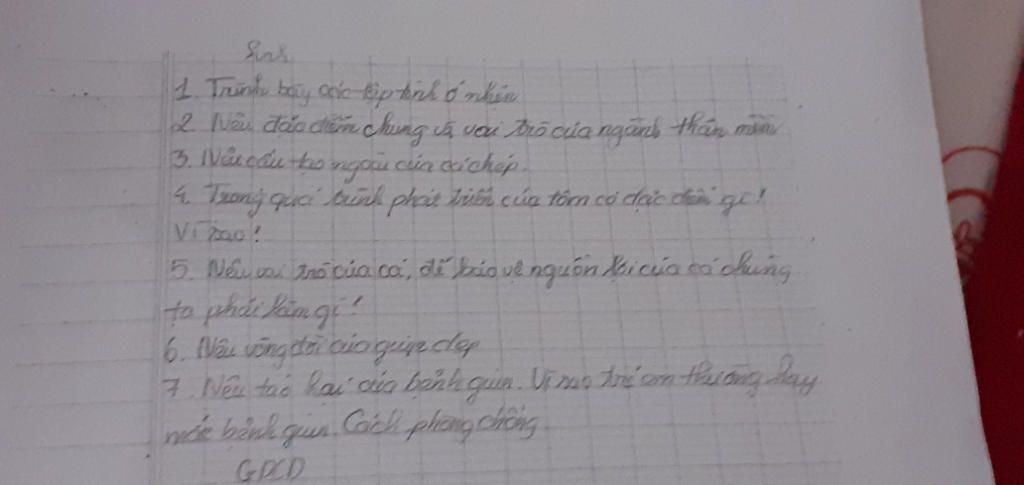 Sinh
1. Trình bày các tập tính ở nhện
2. Nêu đặc điểm chung và vai trò của ngành thân mềm
3. Nêu cấu tạo ngoài của cá chép.
4. Trong quá trình phát triển của tôm có đặc điểm gì?
Vì sao?
5. Nêu vai trò của cá, để bảo vệ nguồn lợi của cá chúng
ta phải làm gì?
6. Nêu vòng đời của giun dẹp
7. Nêu tác hại của bệnh giun. Vì sao trẻ em thường hay
mắc bệnh giun. Cách phòng chống
GDCD